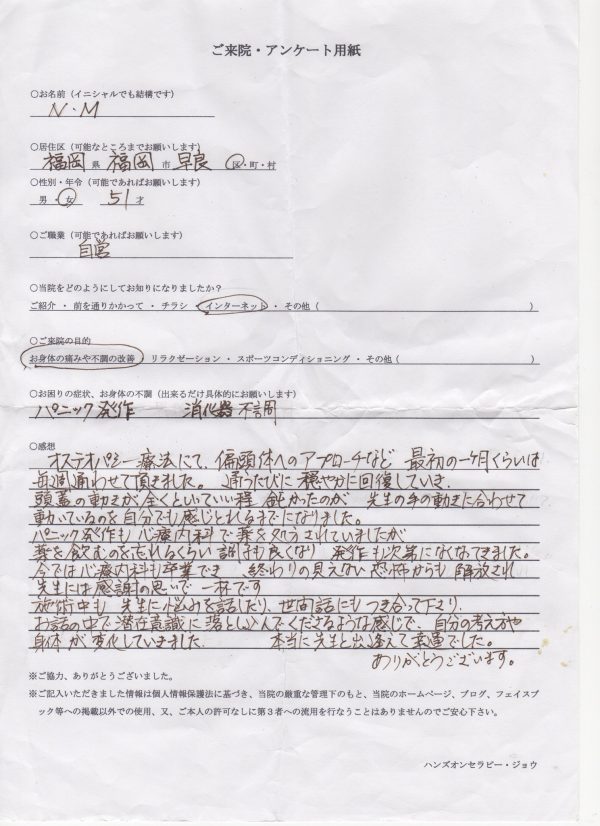 ご来院・アンケート用紙
○お名前（イニシャルでも結構です）
N・M
○居住区（可能なところまでお願いします）
福岡 県 福岡 市 早良 区・町・村
○性別・年令（可能であればお願いします）
男・女 51 才
○ご職業（可能であればお願いします）
自営
○当院をどのようにしてお知りになりましたか？
ご紹介 ・ 前を通りかかって ・ チラシ ・ インターネット ・ その他（ ）
○ご来院の目的
お身体の痛みや不調の改善 ・ リラクゼーション ・ スポーツコンディショニング ・ その他（ ）
○お困りの症状、お身体の不調（出来るだけ具体的にお願いします）
パニック発作 消化器不調
○感想
オステオパシー療法にて、偏頭体へのアプローチなど 最初の一ヶ月くらいは
毎週通わせて頂きました。 通うたびに 穏やかに回復していき
頭蓋の動きが全くといっていい程 無かったのが 先生の手の動きに合わせて
動いているのを自分でも感じとれるまでになりました。
パニック発作も心療内科で薬を処方されていましたが
薬を飲むのを忘れるくらい 調子も良くなり 発作も次第になくなってきました。
今では心療内科も卒業でき 終わりの見えない恐怖からも 解放され
先生には感謝の思いで一杯です
施術中も 先生に悩みを話したり、世間話にもつき合って下さり、
お話の中で潜在意識に落とし込んでくださるような感じで、自分の考え方や
身体が変化していきました。 本当に先生と出逢えて幸運でした。
ありがとうございます。
※ご協力、ありがとうございました。
※ご記入いただきました情報は個人情報保護法に基づき、当院の厳重な管理下のもと、当院のホームページ、ブログ、フェイスブ
ック等への掲載以外での使用、又、ご本人の許可なしに第３者への流用を行なうことはありませんのでご安心下さい。
ハンズオンセラピー・ジョウ